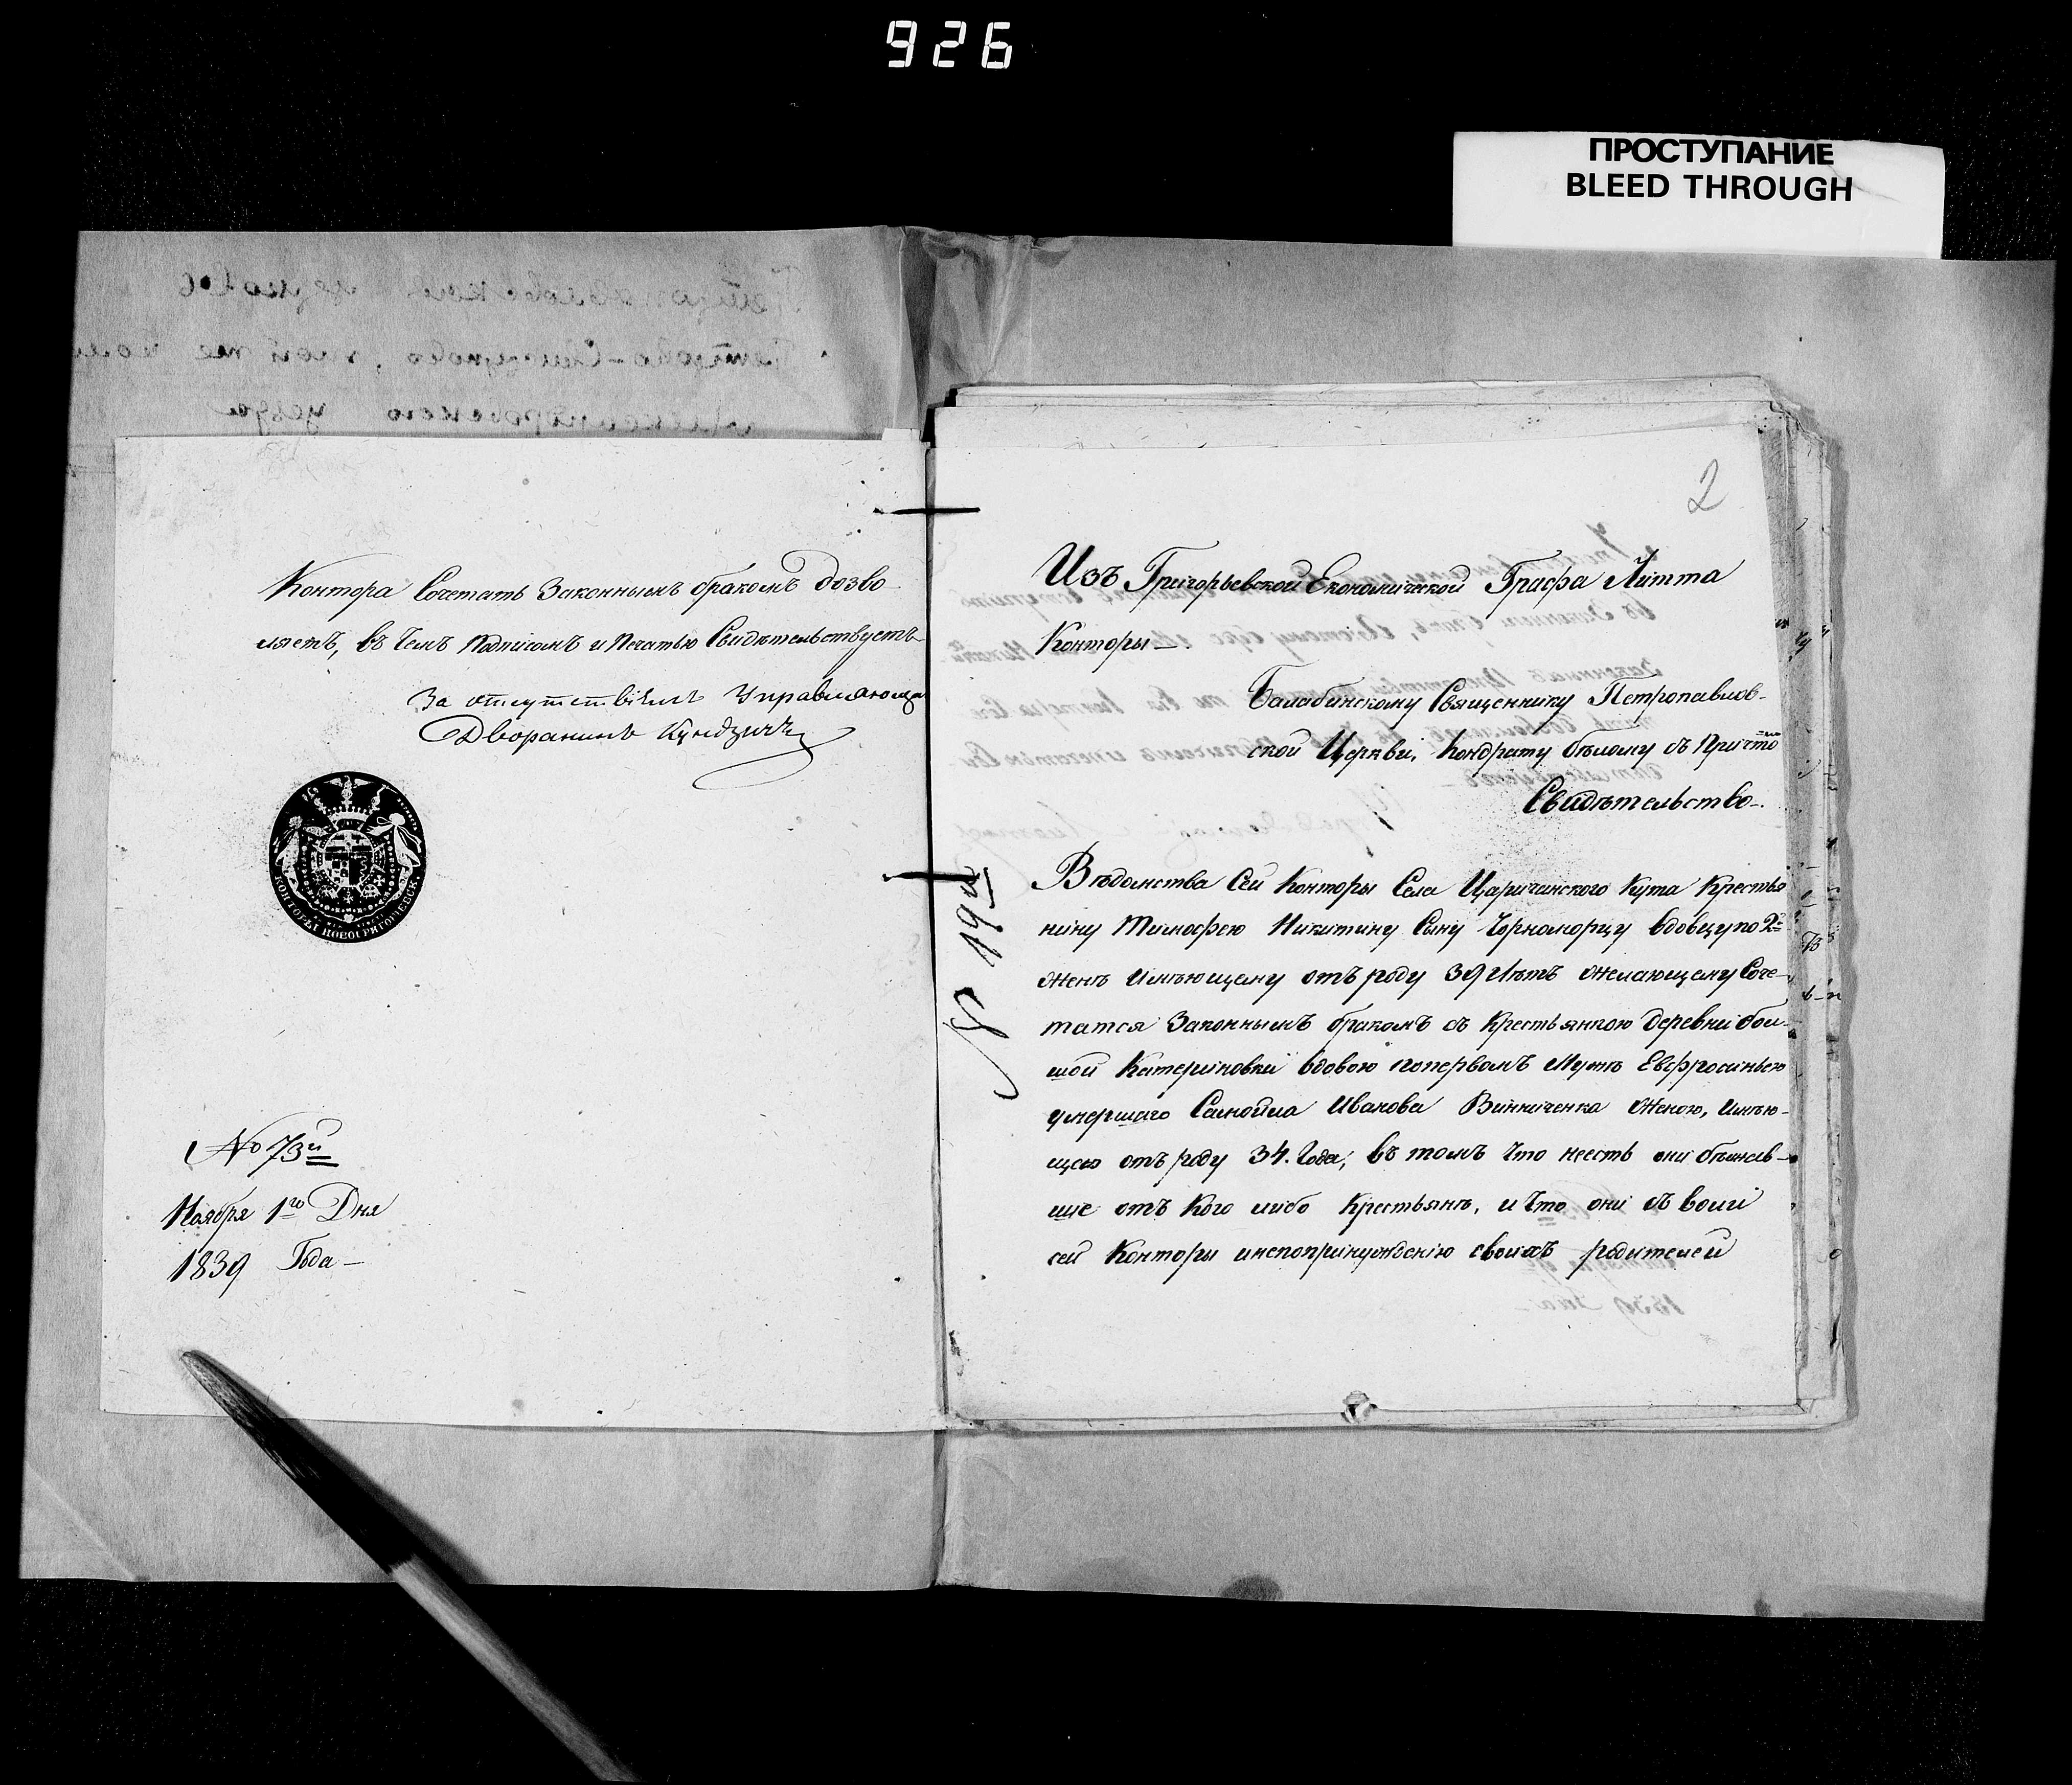 926
ПРОСТУПАНИЕ
BLEED THROUGH
Контора Сочетать Законнымъ бракомъ дозво-
ляетъ, въ Чемъ Подписомъ и Печатью Свидѣтельствуетъ
За отсутствіемъ Управляюща
Дворанинъ Кундзичъ
КОНТОРЫ НОВОГРИГОРЬЕВСК.
№ 73й
Ноября 1го Дня
1839 Года
2
Изъ Григорьевской Економической Графа Литта
Конторы
Балабинскому Священнику Петропавлов-
ской Церкви, Кондрату бѣлому съ Причто
Свидѣтельство
№ 19й
Вѣдомства Сей Конторы Села Царичанского Кута Крестья
нину Тимофею Никитину Сыну Чорноморцу вдовцу по 2й
женѣ Имѣющему отъ роду 39 Лѣтъ желающему Соче-
татся Законнымъ бракомъ съ Крестьянкою деревни бол-
шой Катериновки вдовою поперьвомъ Мужѣ Евфросиньею
умершаго Самойла Иванова Винниченка Женою, Имѣю-
щею отъ роду 34. Года; въ томъ Что неесть они бѣжав-
шие отъ Кого либо Крестьянъ, и Что они съ воли
сей Конторы инепопринужденію своихъ родителей